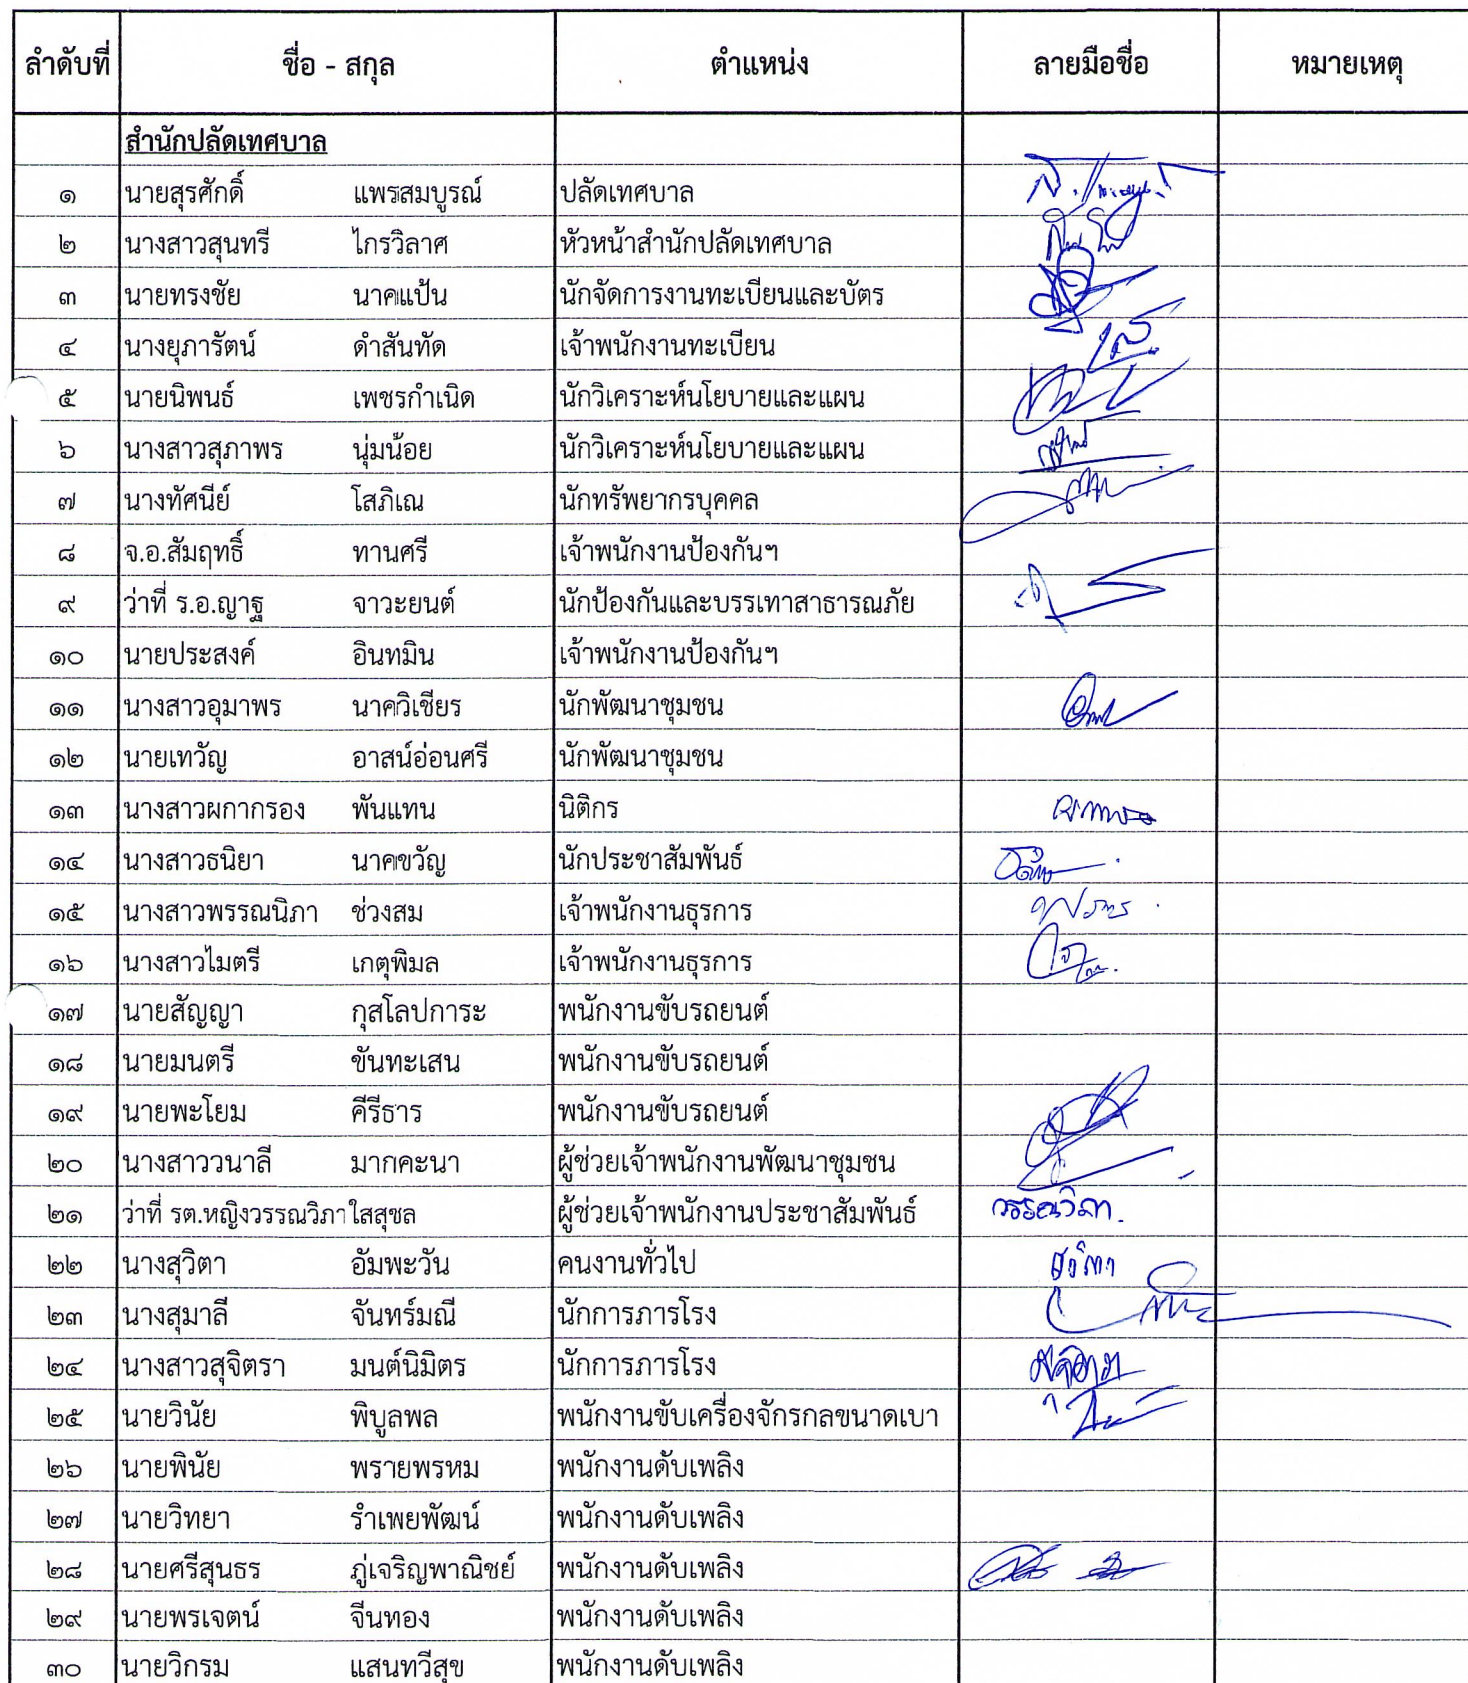 ลำดับที่ ชื่อ - สกุล ตำแหน่ง ลายมือชื่อ หมายเหตุ
สำนักปลัดเทศบาล
๑ นายสุรศักดิ์ แพรสมบูรณ์ ปลัดเทศบาล
๒ นางสาวสุนทรี ไกรวิลาศ หัวหน้าสำนักปลัดเทศบาล
๓ นายทรงชัย นาคแป้น นักจัดการงานทะเบียนและบัตร
๔ นางยุภารัตน์ ดำสันทัด เจ้าพนักงานทะเบียน
๕ นายนิพนธ์ เพชรกำเนิด นักวิเคราะห์นโยบายและแผน
๖ นางสาวสุภาพร นุ่มน้อย นักวิเคราะห์นโยบายและแผน
๗ นางทัศนีย์ โสภิเณ นักทรัพยากรบุคคล
๘ จ.อ.สัมฤทธิ์ ทานศรี เจ้าพนักงานป้องกันฯ
๙ ว่าที่ ร.อ.ญาฐ จาวะยนต์ นักป้องกันและบรรเทาสาธารณภัย
๑๐ นายประสงค์ อินทมิน เจ้าพนักงานป้องกันฯ
๑๑ นางสาวอุมาพร นาควิเชียร นักพัฒนาชุมชน
๑๒ นายเทวัญ อาสน์อ่อนศรี นักพัฒนาชุมชน
๑๓ นางสาวผกากรอง พันแทน นิติกร
๑๔ นางสาวธนิยา นาคขวัญ นักประชาสัมพันธ์
๑๕ นางสาวพรรณนิภา ช่วงสม เจ้าพนักงานธุรการ
๑๖ นางสาวไมตรี เกตุพิมล เจ้าพนักงานธุรการ
๑๗ นายสัญญา กุสโลปการะ พนักงานขับรถยนต์
๑๘ นายมนตรี ขันทะเสน พนักงานขับรถยนต์
๑๙ นายพะโยม คีรีธาร พนักงานขับรถยนต์
๒๐ นางสาววนาลี มากคะนา ผู้ช่วยเจ้าพนักงานพัฒนาชุมชน
๒๑ ว่าที่ รต.หญิงวรรณวิภา ใสสุชล ผู้ช่วยเจ้าพนักงานประชาสัมพันธ์ วรรณวิภา.
๒๒ นางสุวิตา อัมพะวัน คนงานทั่วไป สุวิตา
๒๓ นางสุมาลี จันทร์มณี นักการภารโรง
๒๔ นางสาวสุจิตรา มนต์นิมิตร นักการภารโรง
๒๕ นายวินัย พิบูลพล พนักงานขับเครื่องจักรกลขนาดเบา
๒๖ นายพินัย พรายพรหม พนักงานดับเพลิง
๒๗ นายวิทยา รำเพยพัฒน์ พนักงานดับเพลิง
๒๘ นายศรีสุนธร ภู่เจริญพาณิชย์ พนักงานดับเพลิง
๒๙ นายพรเจตน์ จีนทอง พนักงานดับเพลิง
๓๐ นายวิกรม แสนทวีสุข พนักงานดับเพลิง